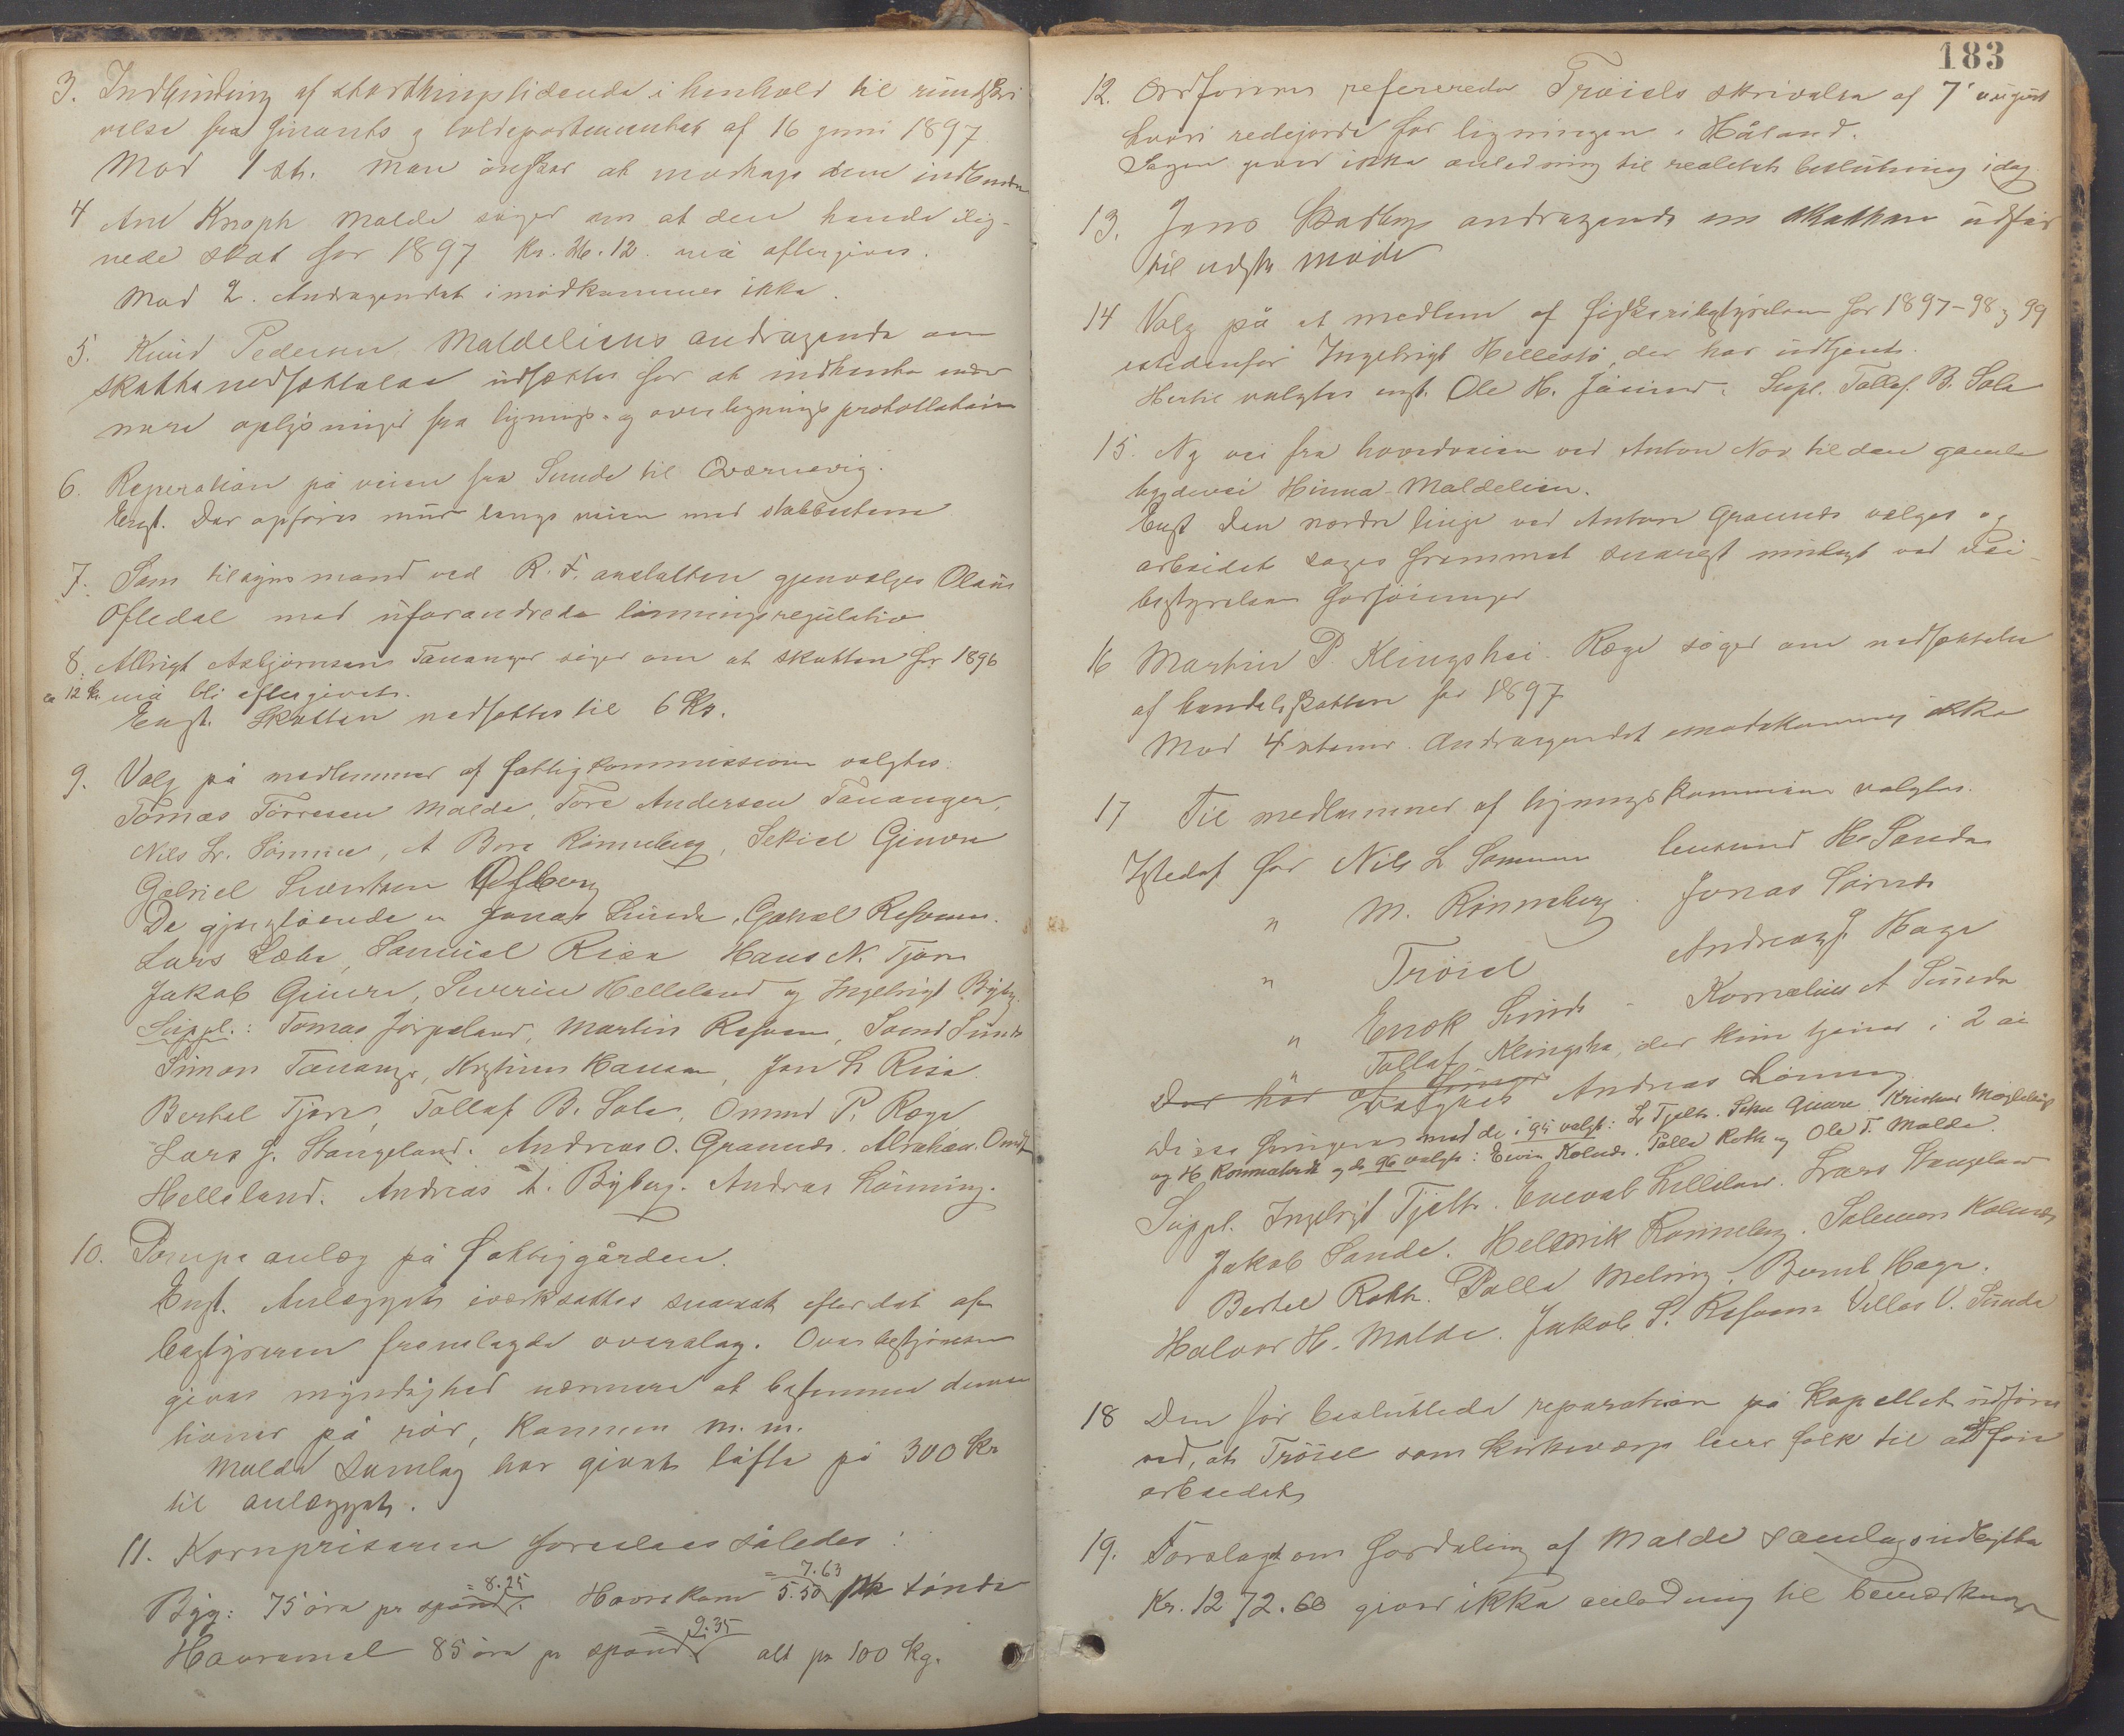 3. Indbinding af storthingstidende i henhold til rundskri
velse fra finants og tolddepartementet af 16 juni 1897
Mod 1 st. Man önsker at modtage dem indbundne
4 Ane Knoph Malde söger om at den hende ilig-
nede skat for 1897 kr. 26.12. må eftergives.
Mod 2. Andragendet imödkommes ikke.
5. Knud Pedersen Maldeliens andragende om
skattenedsættelse udsættes for at indhente
mere oplysninger fra lignings- og overlignings protokollation
6. Reperation på veien fra Sunde til Qværnevig.
Enst. Der opföres mur langs veien med stabbestene
7. Som tilsynsmand ved R. F. anstalten gjenvalges Olaus
Ofledal med uforandrede lönningsregulativ
8. Albrigt Asbjörnsens Tananger söger om at skatten for 1896
12 kr. må bli eftergivet.
Enst. Skatten nedsættes til 6 Kr.
9. Valg på medlemmer af fattigkommissionen valgtes:
Tomas Törresen Malde, Tore Andersen Tananger,
Nils L. Sömme, A Bore Rönneberg, Sekiel Gimre
Gabriel Svendsen Refberg
De gjenstående er Jonas Sunde, Gabriel Refsnes.
Lars Sæbe, Samuel Risa Hans N. Tjore
Jakob Gimre, Severin Helleland og Ingebrigt Byberg.
Suppl.: Tomas Jörpeland, Martin Refsnes, Svend Sunde
Simon Tananger, Kristian Hansen, Jon L Risa.
Bertel Tjore, Tollef B. Sola, Omund P. Ræge
Lars J. Stangeland. Andreas O. Grannes. Abraham Omdt.
Helleland. Andreas A. Byberg. Andreas Lönning.
10. Pompe anlæg på fattiggården.
Enst. Anlægget iværksættes snarest efter det af
bestyreren fremlagde overslag. Overbestyrelsen
gives myndighed nærmere at bestemme dimen
tioner på rör, kummen m. m.
Malde Samlag har givet löfte på 300 Kr
til anlægget.
11. Kornpriserne foreslaaes således:
= 8.25 = 7.63
Byg: 75 öre pr spand. Havrekorn 5.50 pr tönde
= 9.35
Havremel 85 öre pr spand alt pr 100 Kg.
183
12. Ordföreren refererede Tröiels skrivelse af 7' august
hvori redejorde for ligningen i Håland.
Sagen giver ikke anledning til realitets beslutning idag
13. Jens Stadbergs andragende om skatten udsår
til næste möde
14 Valg på et medlem af fiskeribestyrelsen for 1897-98 og 99
istedenfor Ingebrigt Hellestö, der har udtjent.
Hertil valgtes enst. Ole H. Jåsund. Supl. Tollef B. Sola
15. Ny vei fra hovedveien ved Anton Nor til den gamle
bygdevei Hinna-Maldelien.
Enst Den nordre linje ved Anton Grannes velges og
arbeidet söges fremmet snarest muligt ved vei-
bestyrelsens forföininger
16 Martin P. Klingshei Ræge söger om nedsættelse
af handelsskatten for 1897
Mod 4 stemr. Andragendet imödekommes ikke
17 Til medlemmer af ligningskommissionen valgtes.
Istedet for Nils L Sömme lensmand H. Sande
" M. Rönneberg. Jonas Sörnes
" Tröiel Andreas J. Haga
" Enok Sunde - Kornelius A Sunde
" Tollef Klingshe, der kun tjener i 2 år
valgtes Andreas Lönning
Disse fungerer med de i 95 valgte: L. Tjelta. Sekse Gimre. Kristian Meglebust
og H Rönneberg og de 96 valgte: Eivin Kolnes. Palle Roth og Ole T. Malde.
Suppl. Ingebrigt Tjelta. Enevald Lilleland. Lars Stangeland
Jakob Sande. Helmik Rönneberg. Salemon Kolnes
Bertel Roth. Palle Meling. Berent Haga.
Halvor H. Malde. Jakob S. Refsnes Villas V. Sunde
18 Den för besluttede reparation på Kapellet udföres
ved, at Tröiel som kirkeværge leier folk til at udföre
arbeidet
19. Forslaget om fordeling af Malde samlagsudbytte
Kr. 1272.60 giver ikke anledning til bemærkninger